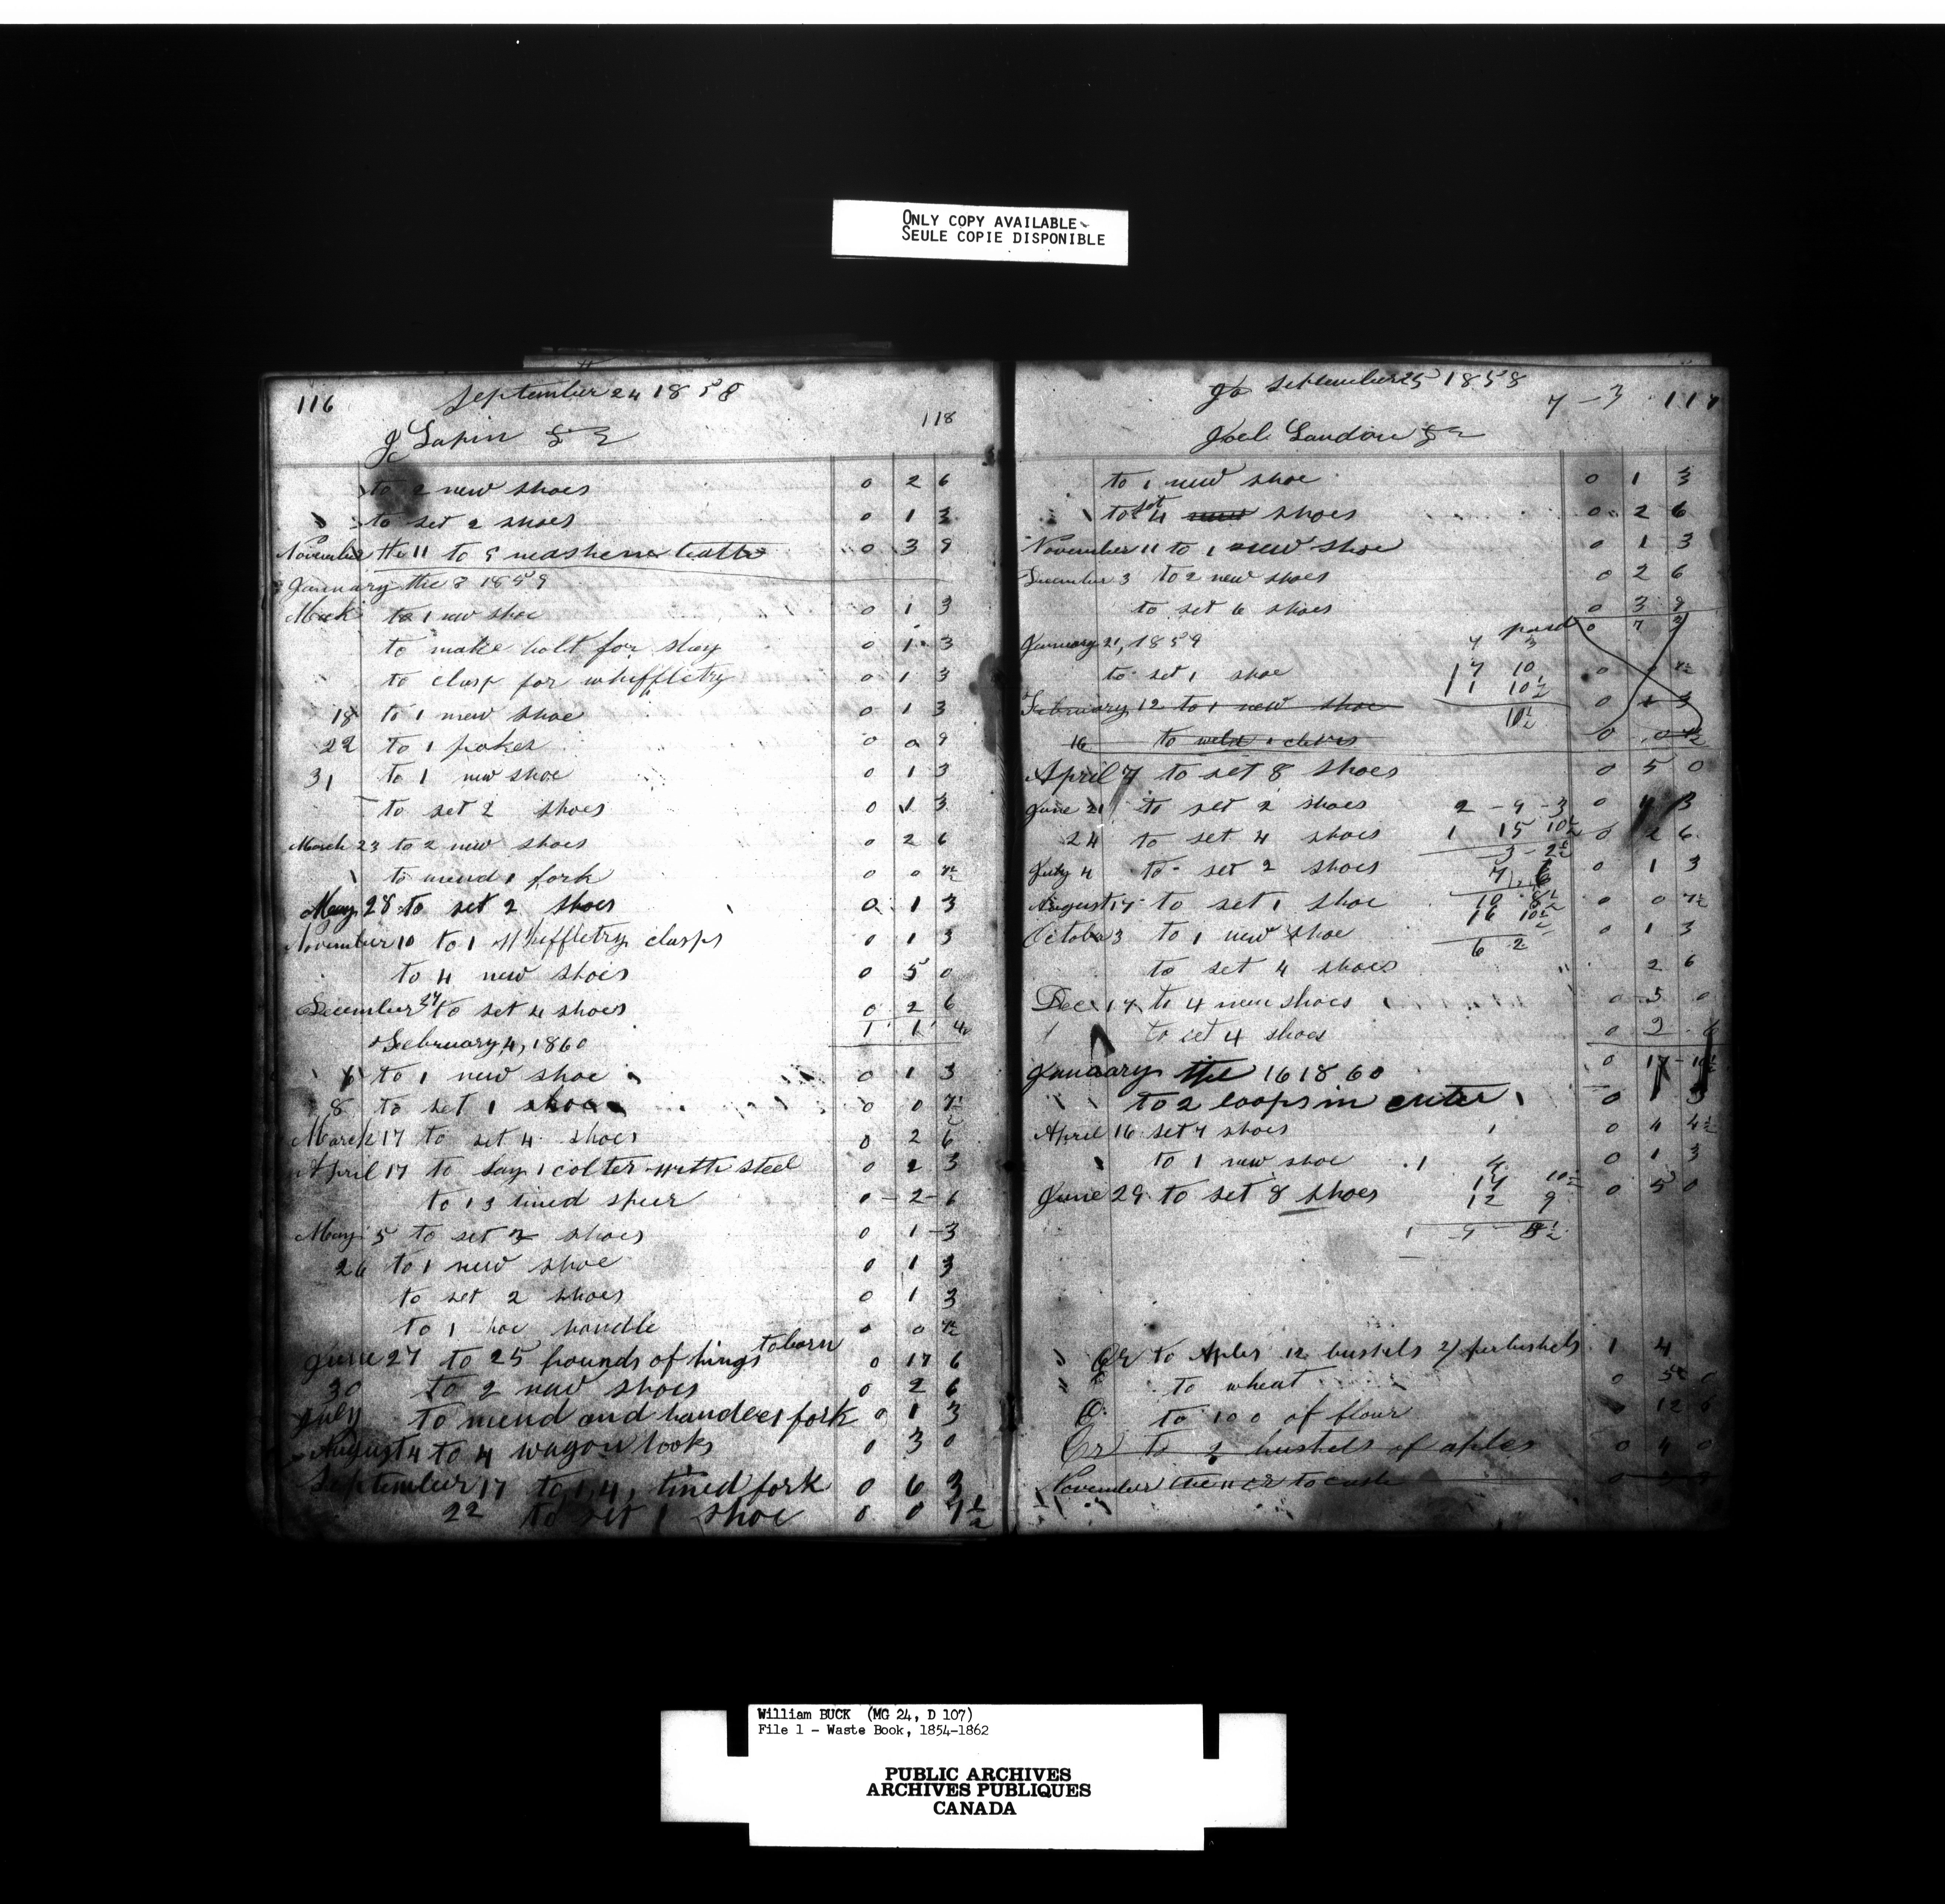 ONLY COPY AVAILABLE
SEULE COPIE DISPONIBLE
116 September 24 1858
118
J Lapin
to 2 new shoes 0 2 6
to set 2 shoes 0 1 3
November the 11 to 9 0 3 9
January the 8 1859
to 1 new shoe 0 1 3
to make bolt for 0 1 3
to clasp for whiffletry 0 1 3
18 to 1 new shoe 0 1 3
22 to 1 poker 0 0 9
31 to 1 new shoe 0 1 3
to set 2 shoes 0 1 3
March 23 to 2 new shoes 0 2 6
to mend 1 fork 0 0 7½
May 28 to set 2 shoes 0 1 3
November 10 to 1 whiffletry clasps 0 1 3
to 4 new shoes 0 5 0
December 27 to set 4 shoes 0 2 6
1 1 4½
February 4, 1860
to 1 new shoe 0 1 3
8 to set 1 shoe 0 0 7½
March 17 to set 4 shoes 0 2 6
April 17 to lay 1 colter with steel 0 2 3
to 1 3 tined speer 0 - 2 - 6
May 5 to set 2 shoes 0 1 - 3
26 to 1 new shoe 0 1 3
to set 2 shoes 0 1 3
to 1 hoe handle 0 0 7½
June 27 to 25 pounds of hings to barn 0 17 6
30 to 2 new shoes 0 2 6
July to mend and handle 1 fork 0 1 3
August 4 to 4 wagon hooks 0 3 0
September 17 to 1, 4, tined fork 0 6 3
22 to set 1 shoe 0 0 7½
September 25 1858
7 - 3 117
Joel Landon
to 1 new shoe 0 1 3
to set 4 new shoes 0 2 6
November 11 to 1 new shoe 0 1 3
December 3 to 2 new shoes 0 2 6
to set 6 shoes 0 3 9
paid 0 7 3
January 21, 1859 7 3
to set 1 shoe 17 10 0 0 7½
11 10½
February 12 to 1 new shoe 0 1 3
10½
16 to weld 1 0 0 7½
April 7 to set 8 shoes 0 5 0
June 21 to set 2 shoes 2 - 9 - 3 0 1 3
24 to set 4 shoes 1 15 10½ 0 2 6
3 - 2½
July 4 to set 2 shoes 7 6 0 1 3
August 17 to set 1 shoe 10 8½ 0 0 7½
16 10½
October 3 to 1 new shoe 0 1 3
6 2
to set 4 shoes 2 6
Dec 17 to 4 new shoes 0 5 0
to set 4 shoes 0 2 6
0 17 - 10½
January the 16 1860
to 2 loops in cuter 0 1 3
April 16 set 7 shoes 0 4 4½
to 1 new shoe 1 4 0 1 3
17 10½
June 29 to set 8 shoes 12 9 0 5 0
1 9 8½
Cr to Aples 12 bushels 2/ per bushels 1 4
to wheat 0 5 0
to 100 of flour 0 12 6
Cr to 2 bushels of aples 0 4 0
November the 11 cr to cash
William BUCK (MG 24, D 107)
File 1 - Waste Book, 1854-1862
PUBLIC ARCHIVES
ARCHIVES PUBLIQUES
CANADA